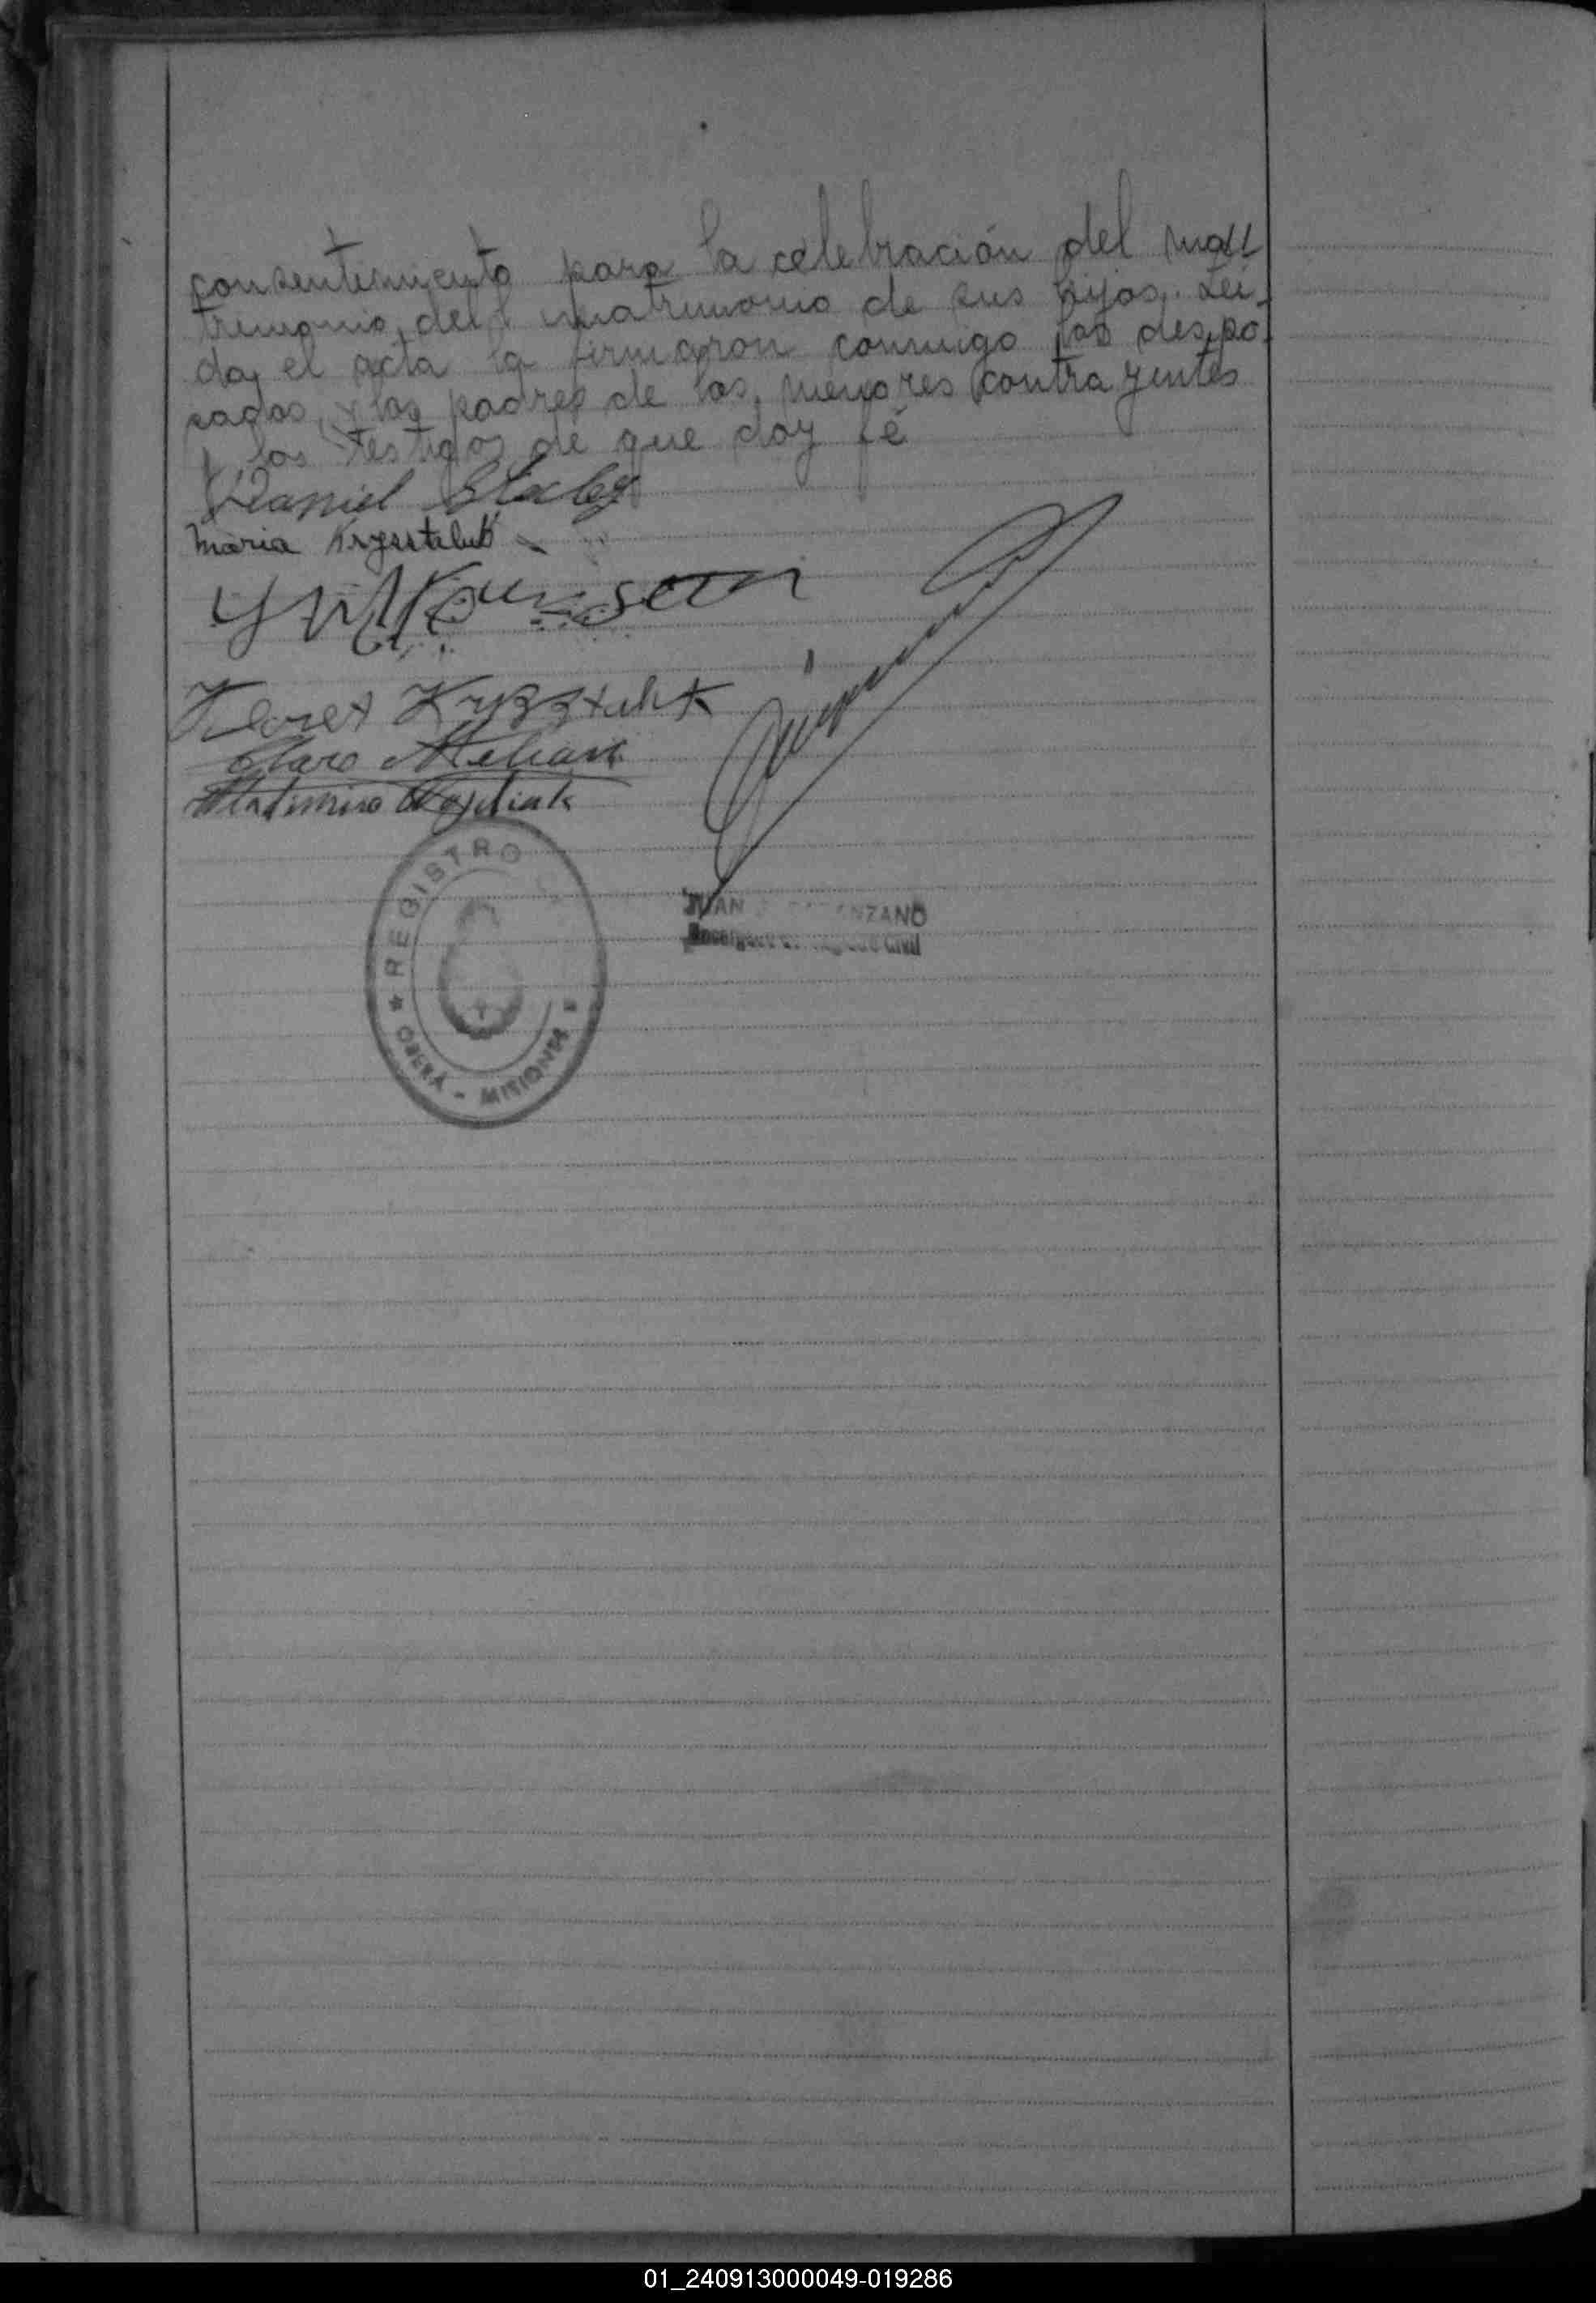 consentimiento para la celebración del ma
trimonio, del matrimonio de sus hijos. Leí-
da el acta la firmaron conmigo los despo-
sados, y los padres de los menores contrayentes
y los testigos de que doy fé
Daniel
Maria Krysstaluk
Krysztaluk
REGISTRO
OBERÁ - MISIONES
JUAN ANZANO
Civil
01_240913000049-019286